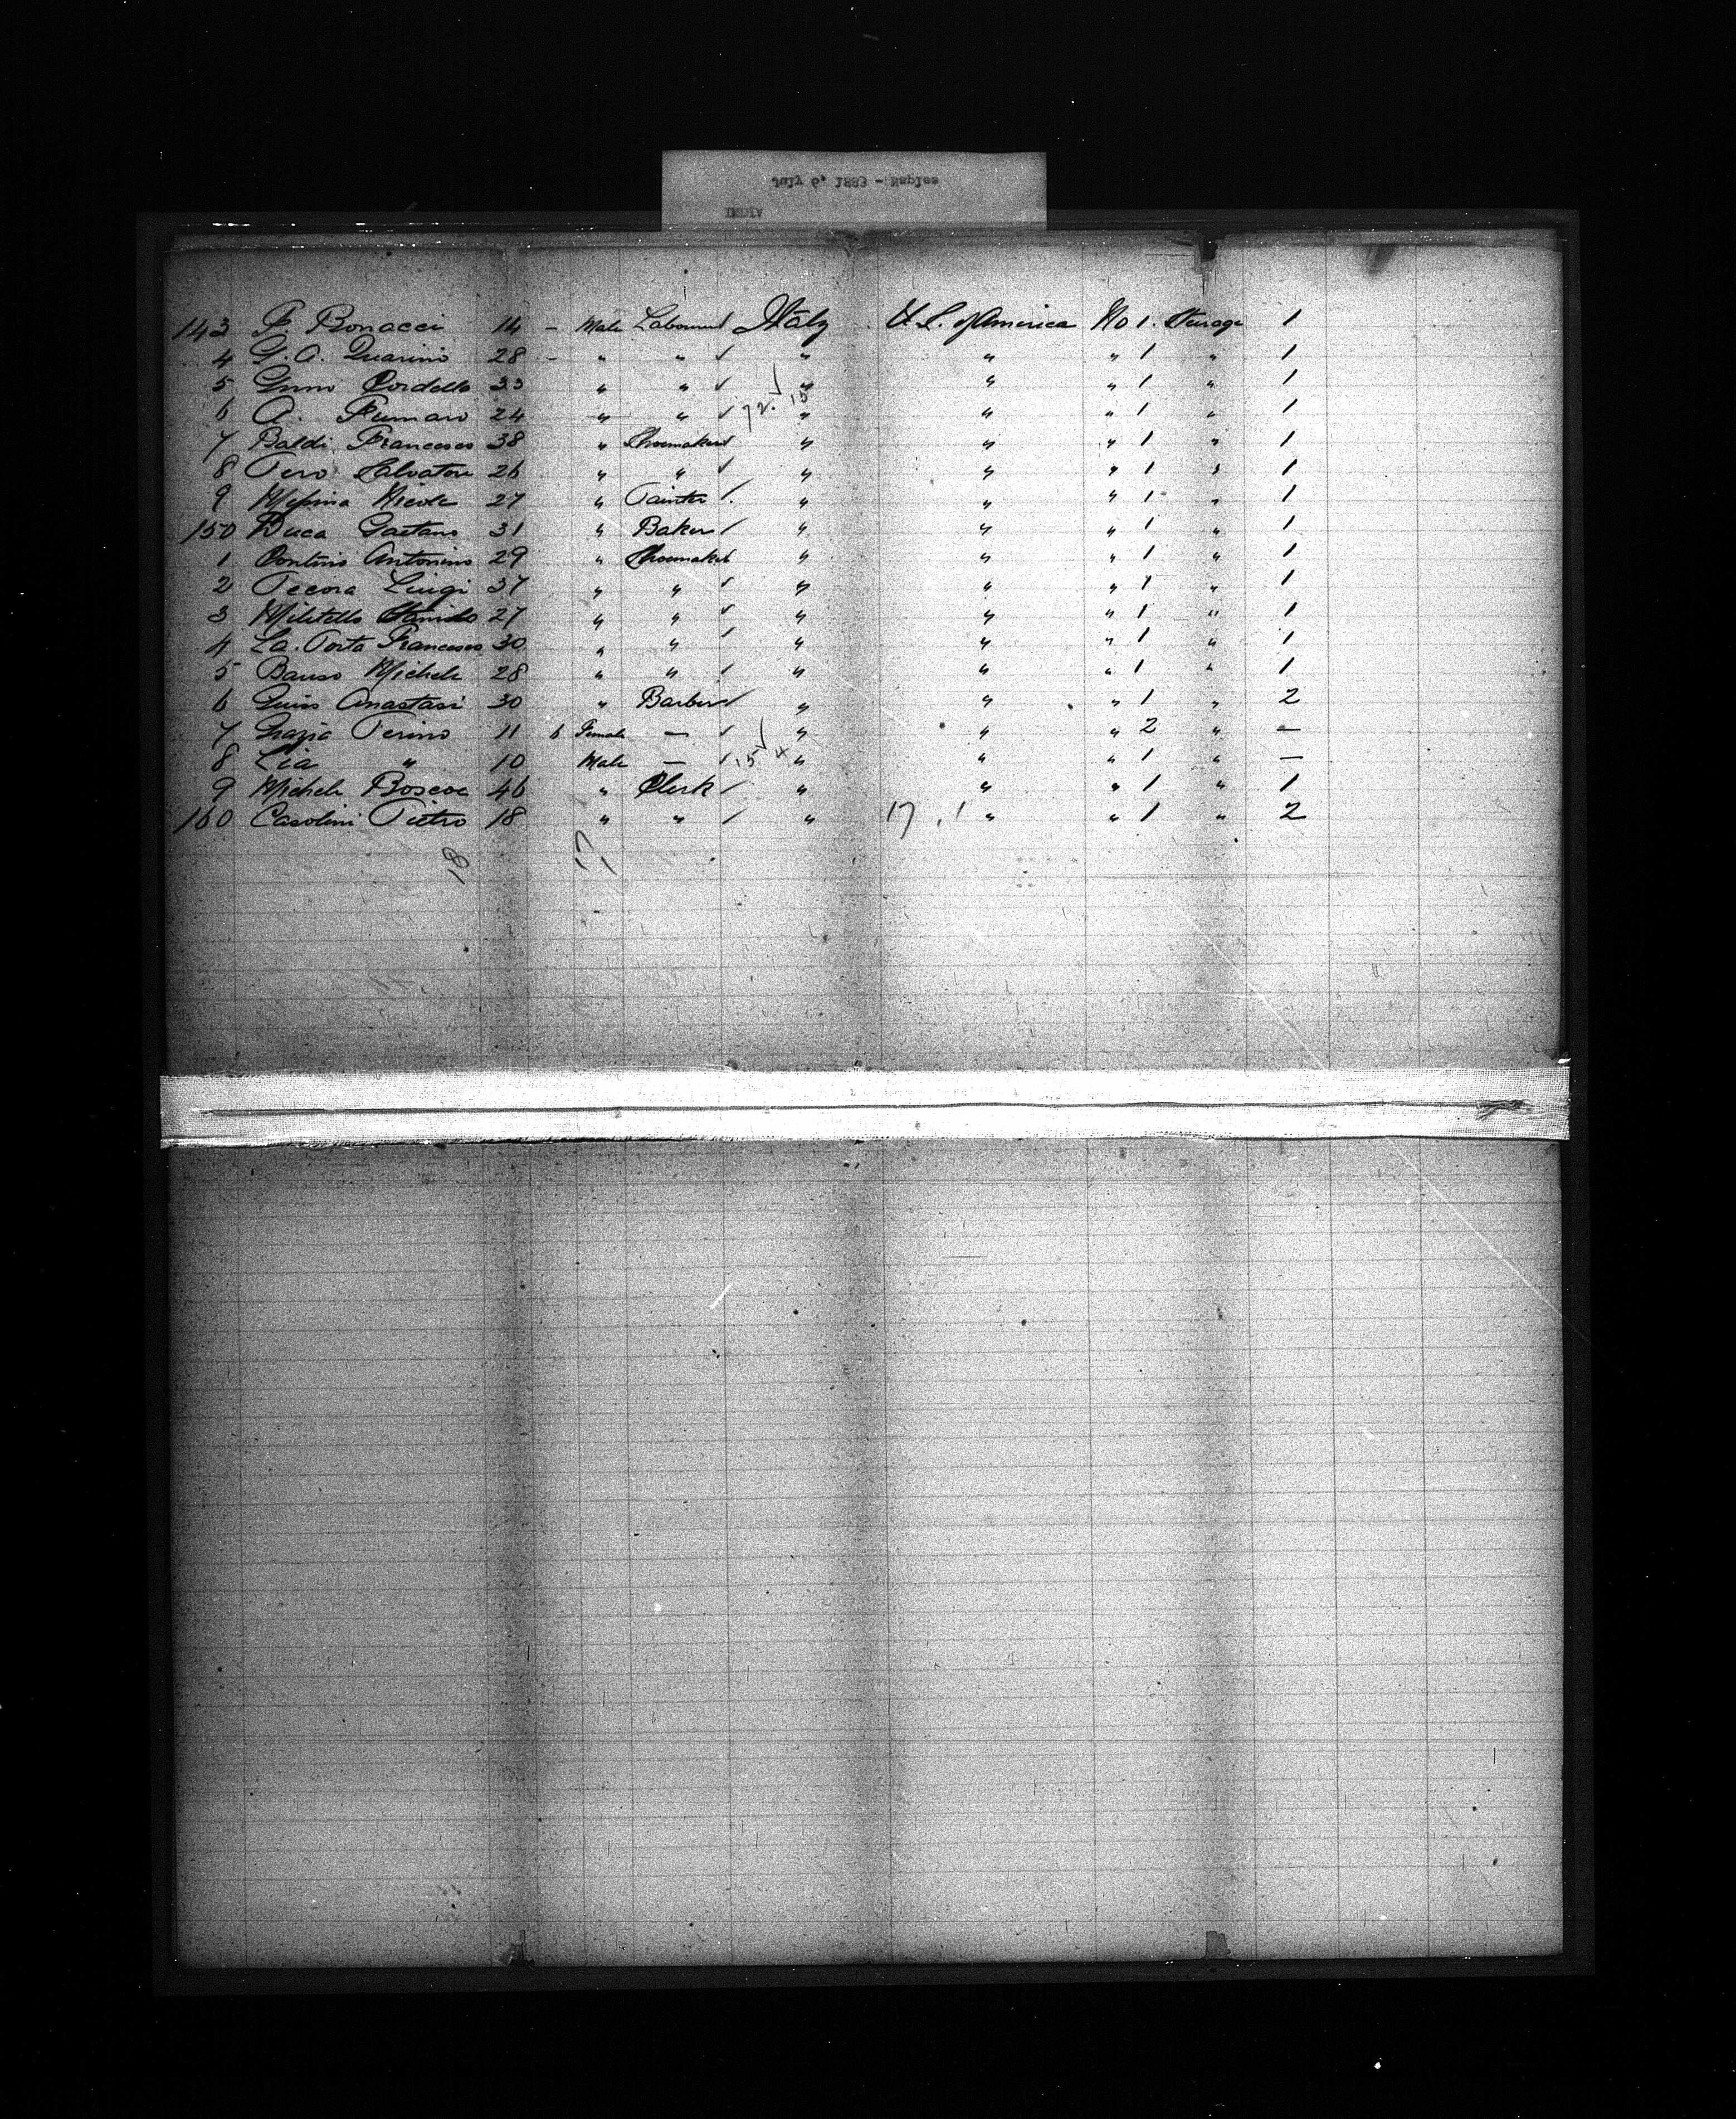 July 6, 1883 - Naples
INDIA
143 F. Bonacci 14 - Male Labourer ✓ Italy U.S. of America No 1. Steerage 1
4 G. A. Guarino 28 - " " ✓ " " " 1 " 1
5 Cordello 33 " " ✓ " " " 1 " 1
6 A. Fumaro 24 " " ✓ 72 ✓ 15 " " " 1 " 1
7 Baldi Francesco 38 " Shoemaker ✓ " " " 1 " 1
8 Pero Salvatore 26 " " ✓ " " " 1 " 1
9 Messina Nicole 27 " Painter ✓ " " " 1 " 1
150 Buca Gaetano 31 " Baker ✓ " " " 1 " 1
1 Contino Antonino 29 " Shoemaker ✓ " " " 1 " 1
2 Pecora Luigi 37 " " ✓ " " " 1 " 1
3 Militello 27 " " ✓ " " " 1 " 1
4 La. Porta Francesco 30 " " ✓ " " " 1 " 1
5 Bauso Michele 28 " " ✓ " " " 1 " 1
6 Anastasi 30 " Barber ✓ " " " 1 " 2
7 Grazia Perino 11 6 Female — ✓ " " " 2 " —
8 Lia " 10 Male — ✓ 15 ✓ 4 " " " 1 " —
9 Michele Boscoe 46 " Clerk ✓ " " " 1 " 1
160 Casolini Pietro 18 " " ✓ " 17 . 1 " " 1 " 2
18 17